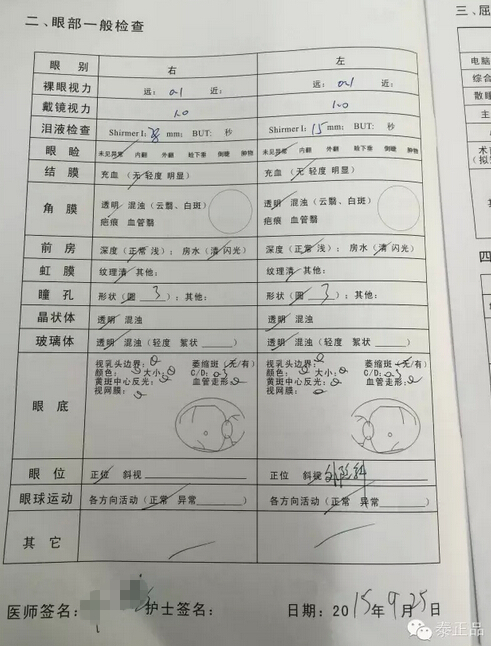 二、眼部一般检查
三、屈
眼 别 右 左
裸眼视力 远：0.1 近： 远：0.1 近：
戴镜视力 1.0 1.0
泪液检查 Shirmer I： mm； BUT: 秒 Shirmer I：15 mm； BUT: 秒
眼 睑 未见异常 内翻 外翻 睑下垂 倒睫 肿物 未见异常 内翻 外翻 睑下垂 倒睫 肿物
结 膜 充血（无 轻度 明显） 充血（无 轻度 明显）
角 膜 透明 混浊（云翳、白斑） 透明 混浊（云翳、白斑）
疤痕 血管翳 疤痕 血管翳
前 房 深度（正常 浅）；房水（清 闪光） 深度（正常 浅）；房水（清 闪光）
虹 膜 纹理清 其他： 纹理清 其他：
瞳 孔 形状（圆 3 ）；其他： 形状（圆 3 ）；其他：
晶状体 透明 混浊 透明 混浊
玻璃体 透明 混浊（轻度 絮状 ） 透明 混浊（轻度 絮状 ）
眼 底
视乳头边界： 萎缩斑（无/有） 视乳头边界： 萎缩斑（无/有）
颜色： 大小： C/D：0.3 颜色： 大小： C/D：0.3
黄斑中心反光： 血管走形： 黄斑中心反光： 血管走形：
视网膜： 视网膜：
眼 位 正位 斜视 正位 斜视 外隐斜
眼球运动 各方向活动（正常 异常 ） 各方向活动（正常 异常 ）
其 它
医师签名： 护士签名： 日期：2015年9月25日
电脑
综合
散瞳
主
术
（拟
四
泰正品